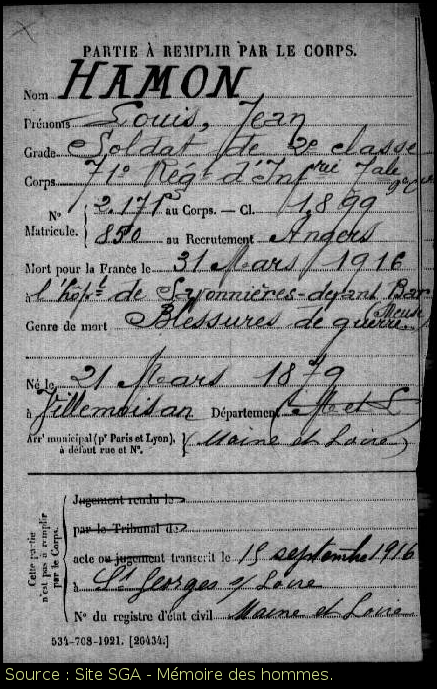 PARTIE À REMPLIR PAR LE CORPS.
Nom HAMON
Prénoms Louis, Jean
Grade Soldat de 2e classe
Corps 71e Régt d'Infrie Tale
N° 2.175 au Corps. — Cl. 1899
Matricule. 850 au Recrutement Angers
Mort pour la France le 31 Mars 1916
à l'hôpt de Savonnières-devant Bar
(Meuse)
Genre de mort Blessures de guerre
Né le 21 Mars 1879
à Villemoisan Département (M et L
Arrt municipal (pr Paris et Lyon), à défaut rue et N°. (Maine et Loire)
Cette partie n'est pas à remplir par le Corps.
Jugement rendu le
par le Tribunal de
acte ou jugement transcrit le 15 septembre 1916
à St Georges s/ Loire
N° du registre d'état civil Maine et Loire
534-708-1921. [26434.]
Source : Site SGA - Mémoire des hommes.